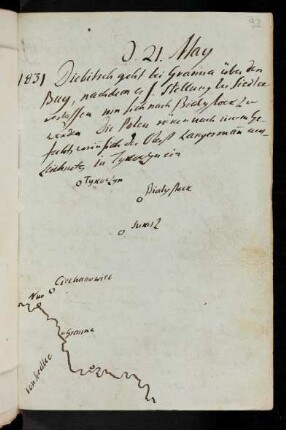 92
D. 21. May
1831 Diebitsch geht bei Granna über den
Bug, nachdem er s. Stellung bei Siedlce
verlassen um sich nach Bialystock zu
wenden Die Polen rücken nach einem Ge-
fecht, worin sich der Obrst Langerman aus-
zeichnete in Tykoczyn ein
Tykoczyn
Bialystock
Suras
Ciechanowiec
Nur
Granna
von Siedlce